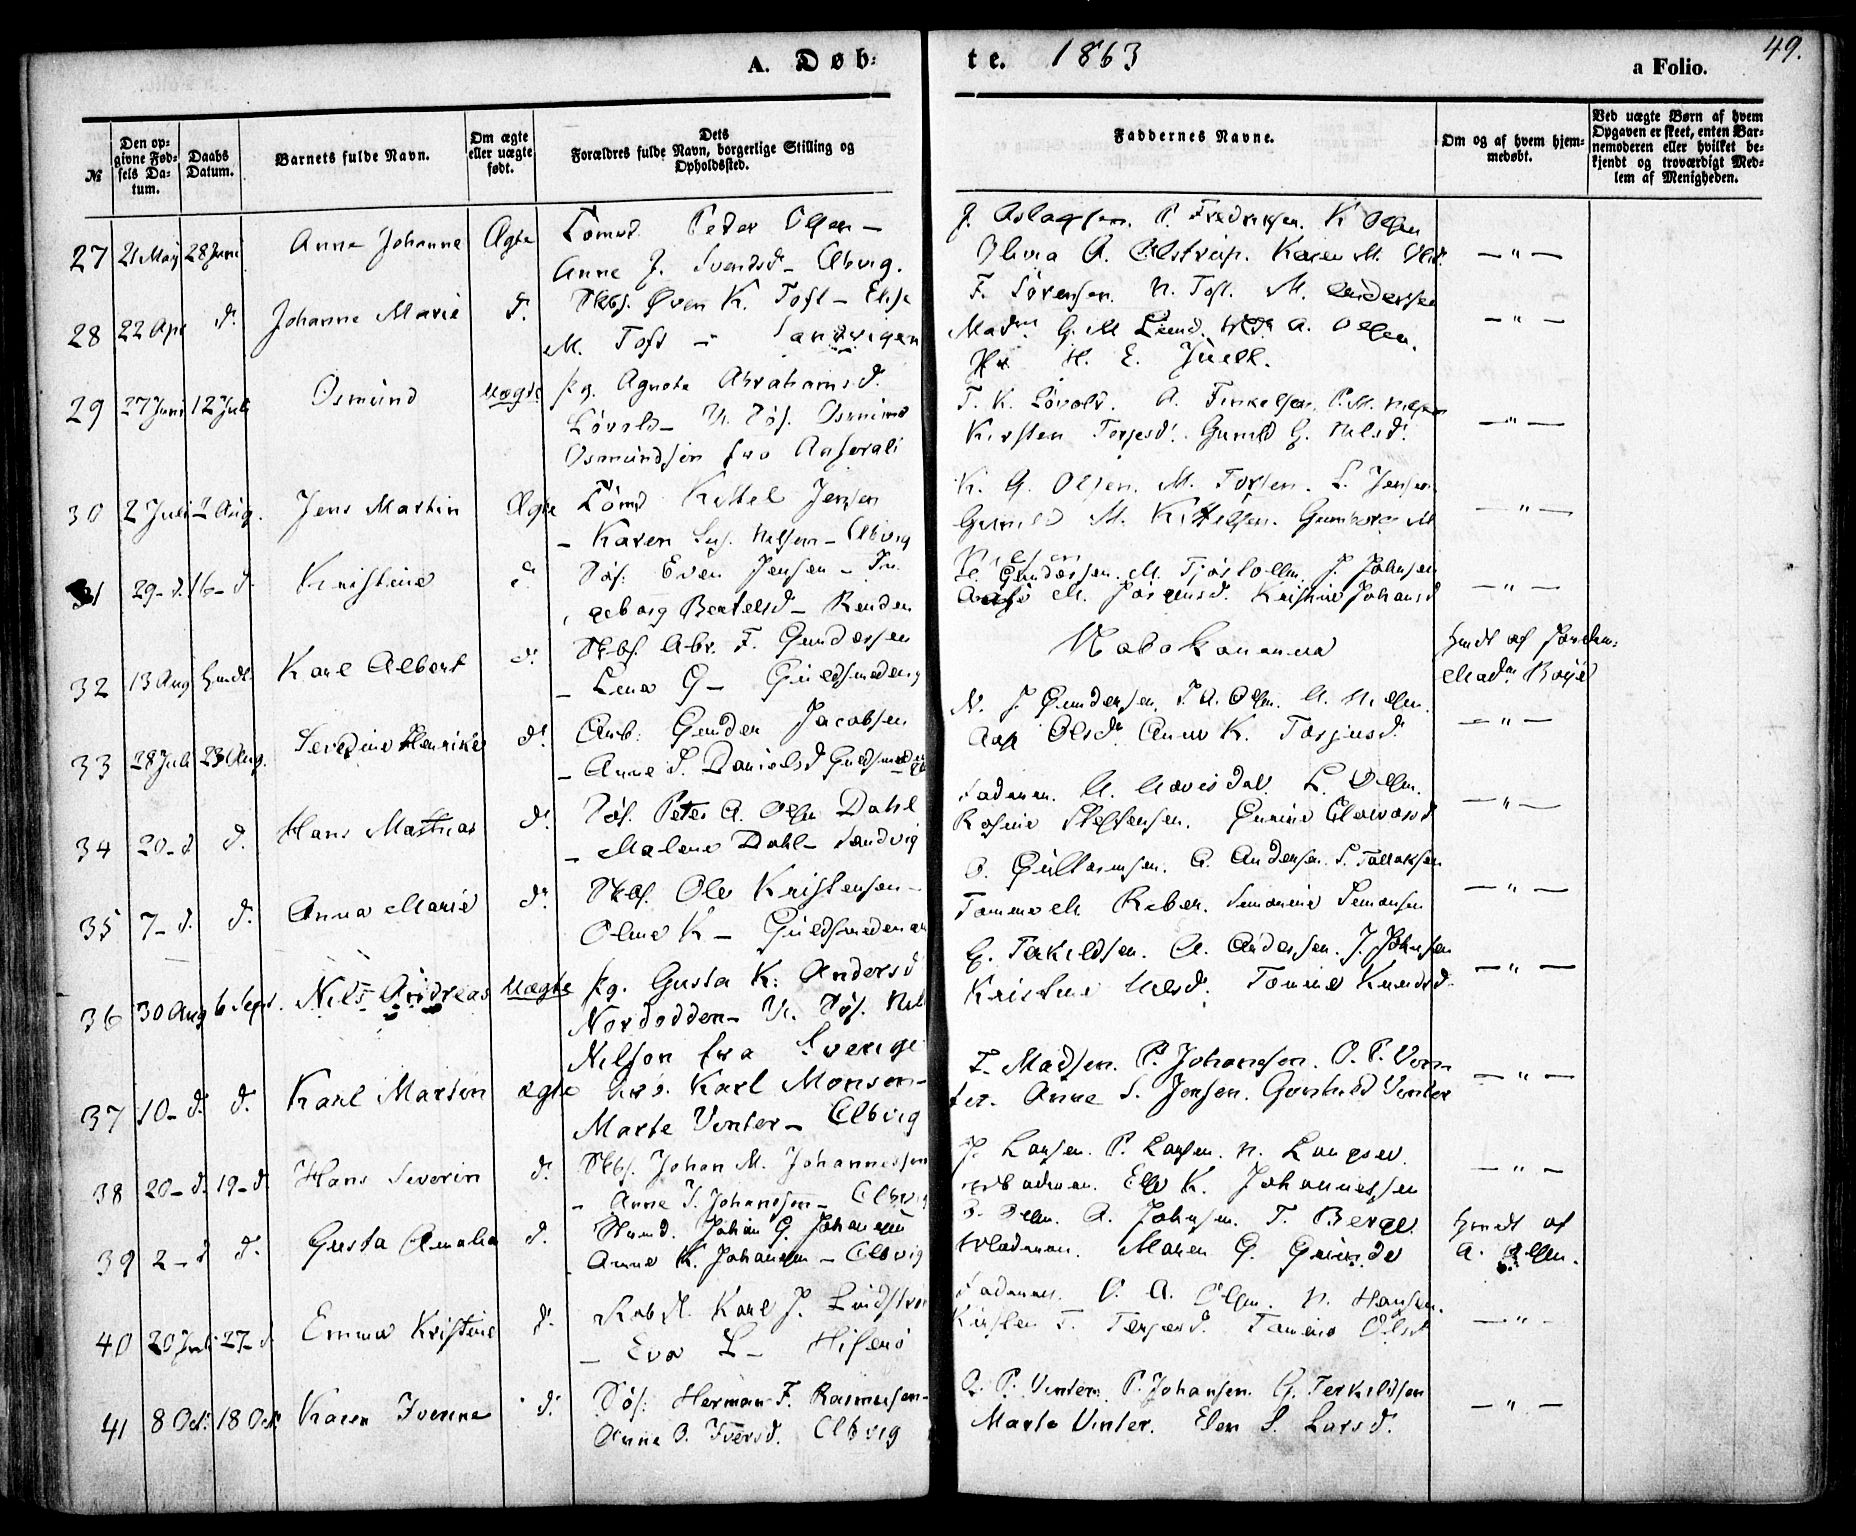 A. Døb-
te. 1863
a Folio.
49.
№
Den op-
givne Fød-
sels Da-
tum.
Daabs
Datum.
Barnets fulde Navn.
Om ægte
eller uægte
født.
Dets
Forældres fulde Navn, borgerlige Stilling og
Opholdssted.
Faddernes Navne.
Om og af hvem hjem-
medøbt.
Ved uægte Børn af hvem
Opgaven er skeet, enten Bar-
nemoderen eller hvilket be-
kjendt og troværdigt Med-
lem af Menigheden.
27 21 May 28 Juni Anne Johanne Ægte Tømd. Peder Olsen —
Anne J. Svendsd — Elbvig.
J. Aslagsen. P. Fredriksen. K Olsen
Olivia A. Karen M. — " —
28 22 Apr d. Johanne Marie d. Skbf. Øven K. Toft — Elise
M. Toft — Sandvigen
F. Sørensen. N. Toft. M. Andersen
Mad. G. M Lund. A. Olsen.
H. E. Juell. — " —
29 27 Juni 12 Juli Osmund Uægte pg. Agnete Abrahamsd.
Løvold — U. Søf. Osmund
Osmundsen fra
T. K. Løvold. A. Terkelsen. P. M. Nilsen
Kirsten Torjesd. Gunild G. Nilsd. — " —
30 2 Juli 2 Aug. Jens Martin Ægte Tømd Kittel Jensen
— Karen Nilsen — Elbvig
K. G. Olsen. M. Torsen. S. Jensen
Gunild M. Kittelsen. Gunborg M
Nilsen — " —
31 29 – d. 16 – d. Kristine d. Søf. Even Jensen — In-
geborg Bertelsd — Renden
Gundersen. M. Tjøstolfsen. J. Johnsen
M. Jørgensd. Kristine Johansd — " —
32 13 Aug hmdt. Karl Albert d. Skbf. Abr. F. Gundersen
— Lena G — Guldsmedeng
hmdt af Jordem.
Mad. Boye
33 28 Juli 23 Aug. Severine Henrike d. Arb. Gunder Jacobsen
— Anne S. Danielsd Guldsmedeng
N. J. Gundersen. J. A. Olsen. A. Nilsen.
Olsd. Anne K. Torjusd. — " —
34 20 – d d. Hans Mathias d. Søf. Peter A. Olsen Dahl
— Malene Dahl — Sandvig
Faderen. A. L. Olsen.
Rosine Steffensen. Gurine — " —
35 7 – d. d. Anna Marie d. Skbf. Ole Kristensen —
Oline K — Guldsmedengen
O. Gulbransen. A. Andersen. S. Tallaksen
Tomine M. Reber. Simonine Simonsen — " —
36 30 Aug 6 Sept. Nils Andreas Uægte pg. Gusta K. Andersd
Nordodden — U. Søf. Nils
Nilson fra Sverige
G. Terkildsen. A. Andersen. J. Johnsen
Kristine Nilsd. Tomine Knudsd. — " —
37 10 – d. d. Karl Martin ægte Karl Monsen —
Marte Vinter — Elbvig
T. Madsen. P. Johansen. O. P. Vin-
ter. Anne S. Jensen. Gunhild Vinter — " —
38 20 – d. 19 – d Hans Severin d. Skbf. Johan M. Johannessen
— Anne S. Johansen — Elbvig
J. Larsen. P. Larsen. N. Langsev.
Elen K. Johannessen — " —
39 2 – d d. Gusta Amalia d. Johan G. Johansen
Anne K. Johansen — Elbvig
A. Johnsen. T. Berge.
Maren G. Grunde
hmdt af
A. Olsen.
40 20 Juli 27 – d Emma Kristine d. Karl J. Lindstrøm
— Eva L — Hisøen
Faderen. O. A. Olsen. N. Hansen.
Kirsten T. Terjesd. Tomine Olsd — " —
41 8 Oct. 18 Oct. Karen Iverine d. Søf. Herman F. Rasmusen —
Anne O. Iversd. Elbvig
O. P. Vinter. P. Johansen. G. Terkildsen
Marte Vinter. Elen S. Larsd. — " —